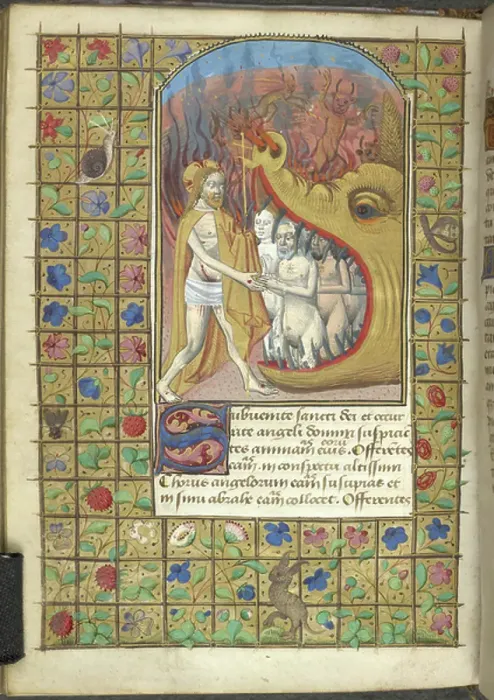 Subuenite sancti dei et occur
rite angeli domini suspicien
as eorum
tes animam eius. Offerentes
as
eam in conspectu altissimi
as
Chorus angelorum eam suscipiat et
as
in sinu abrahe eam collocet. Offerentes